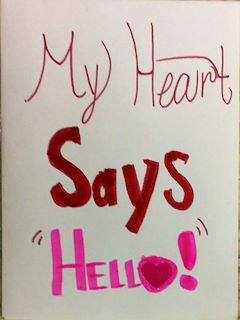 My Heart
Says
"Hello!"